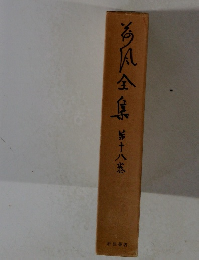 荷風全集
第十八巻